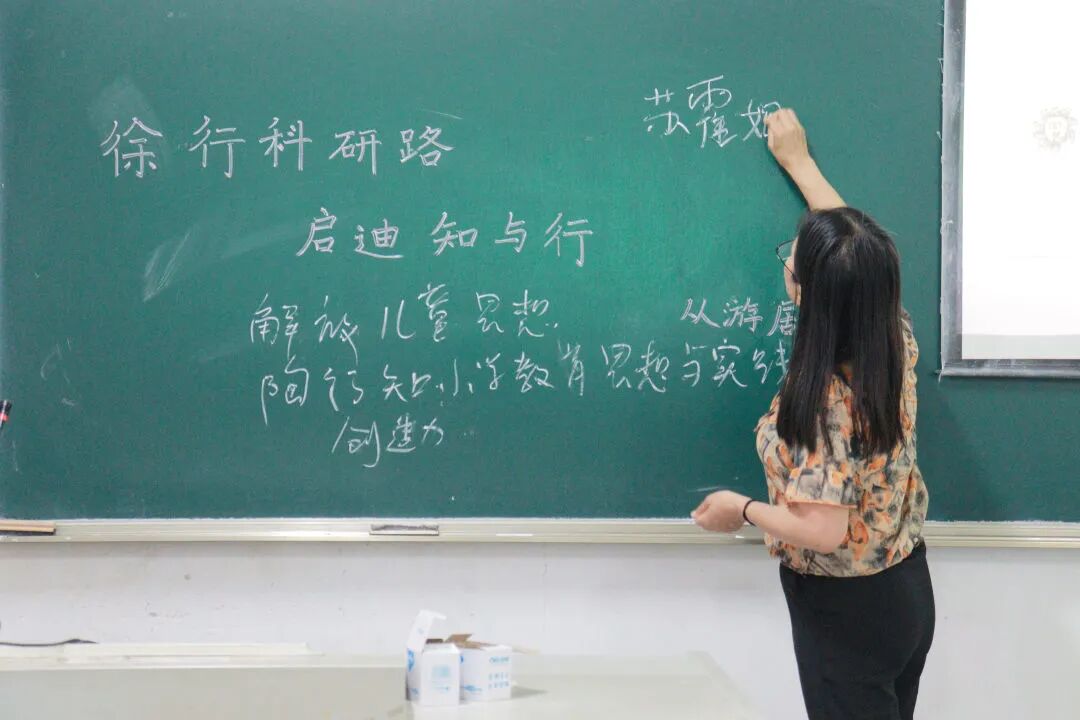 徐行科研路
苏霍姆
启迪知与行
解放儿童思想
从游
陶行知小学教育思想与实践
创造力